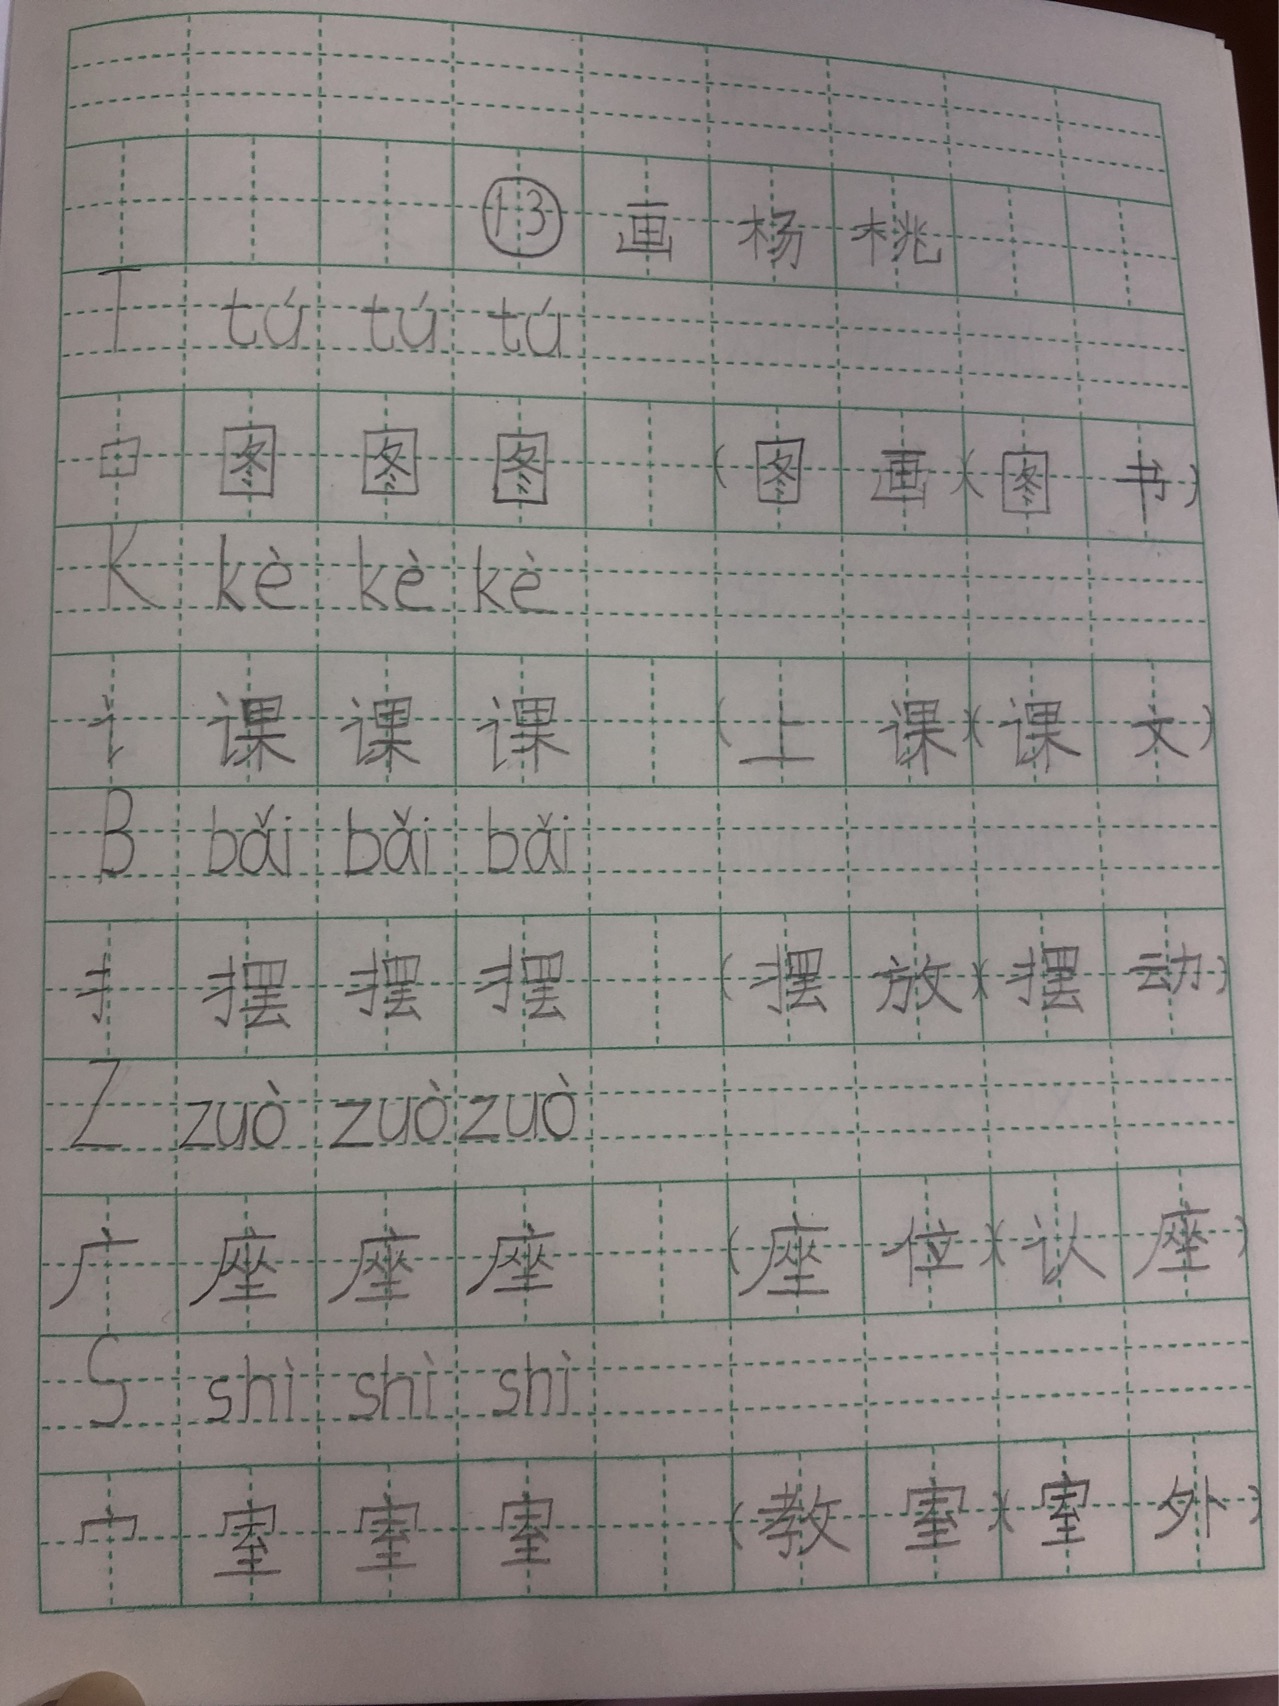 ⑬画杨桃
T tú tú tú
囗 图 图 图 (图画)(图书)
K kè kè kè
讠 课 课 课 (上课)(课文)
B bǎi bǎi bǎi
扌 摆 摆 摆 (摆放)(摆动)
Z zuò zuò zuò
广 座 座 座 (座位)(认座)
S shì shì shì
宀 室 室 室 (教室)(室外)